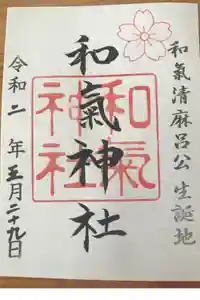 和氣清麻呂公生誕地
和氣神社
和氣
神社
令和二年五月二十九日